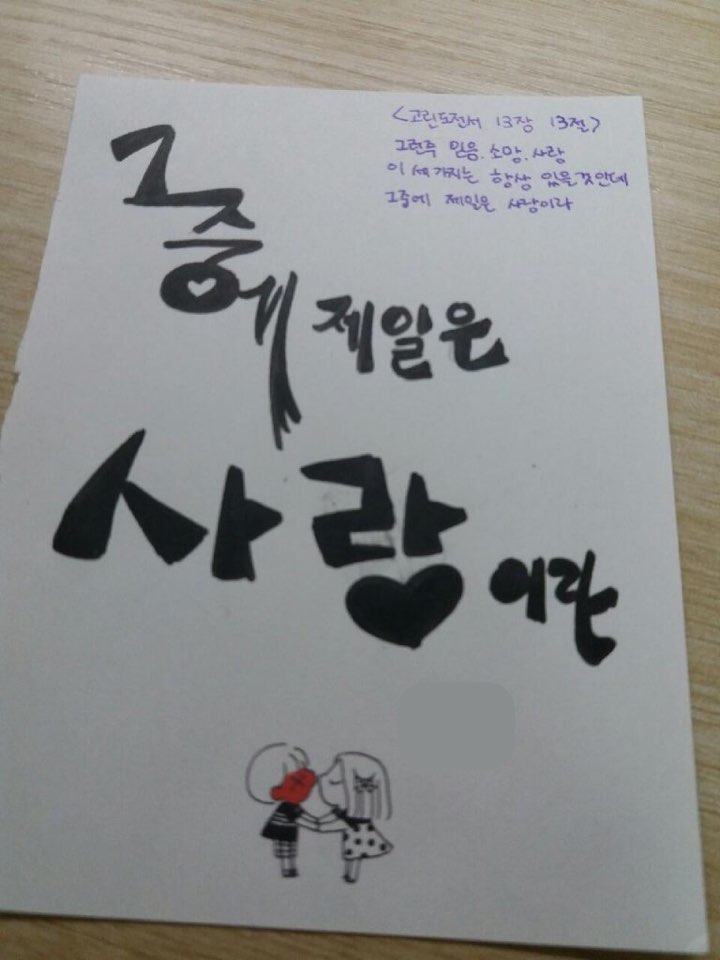 <고린도전서 13장 13절>
그런즉 믿음, 소망, 사랑
이 세가지는 항상 있을것인데
그중에 제일은 사랑이라
그
중에 제일은
사랑이라